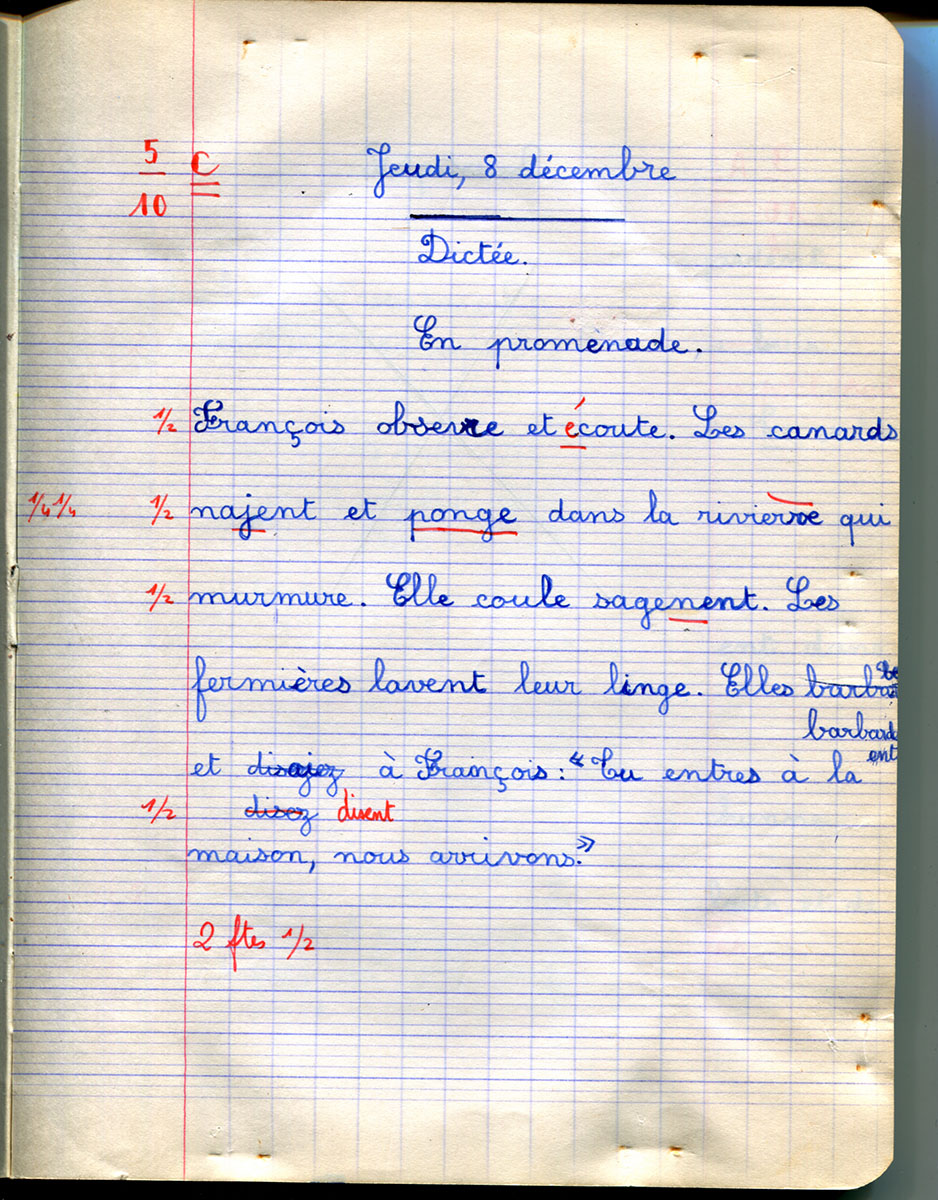 5/10 C Jeudi, 8 décembre
Dictée.
En promenade.
1/2 François observe et écoute. Les canards
1/4 1/4 1/2 najent et ponge dans la rivierre qui
1/2 murmure. Elle coule sagenent. Les
fermières lavent leur linge. Elles
barbardent
et disajez à François : "Tu entres à la
1/2 disez disent
maison, nous arrivons."
2 ftes 1/2